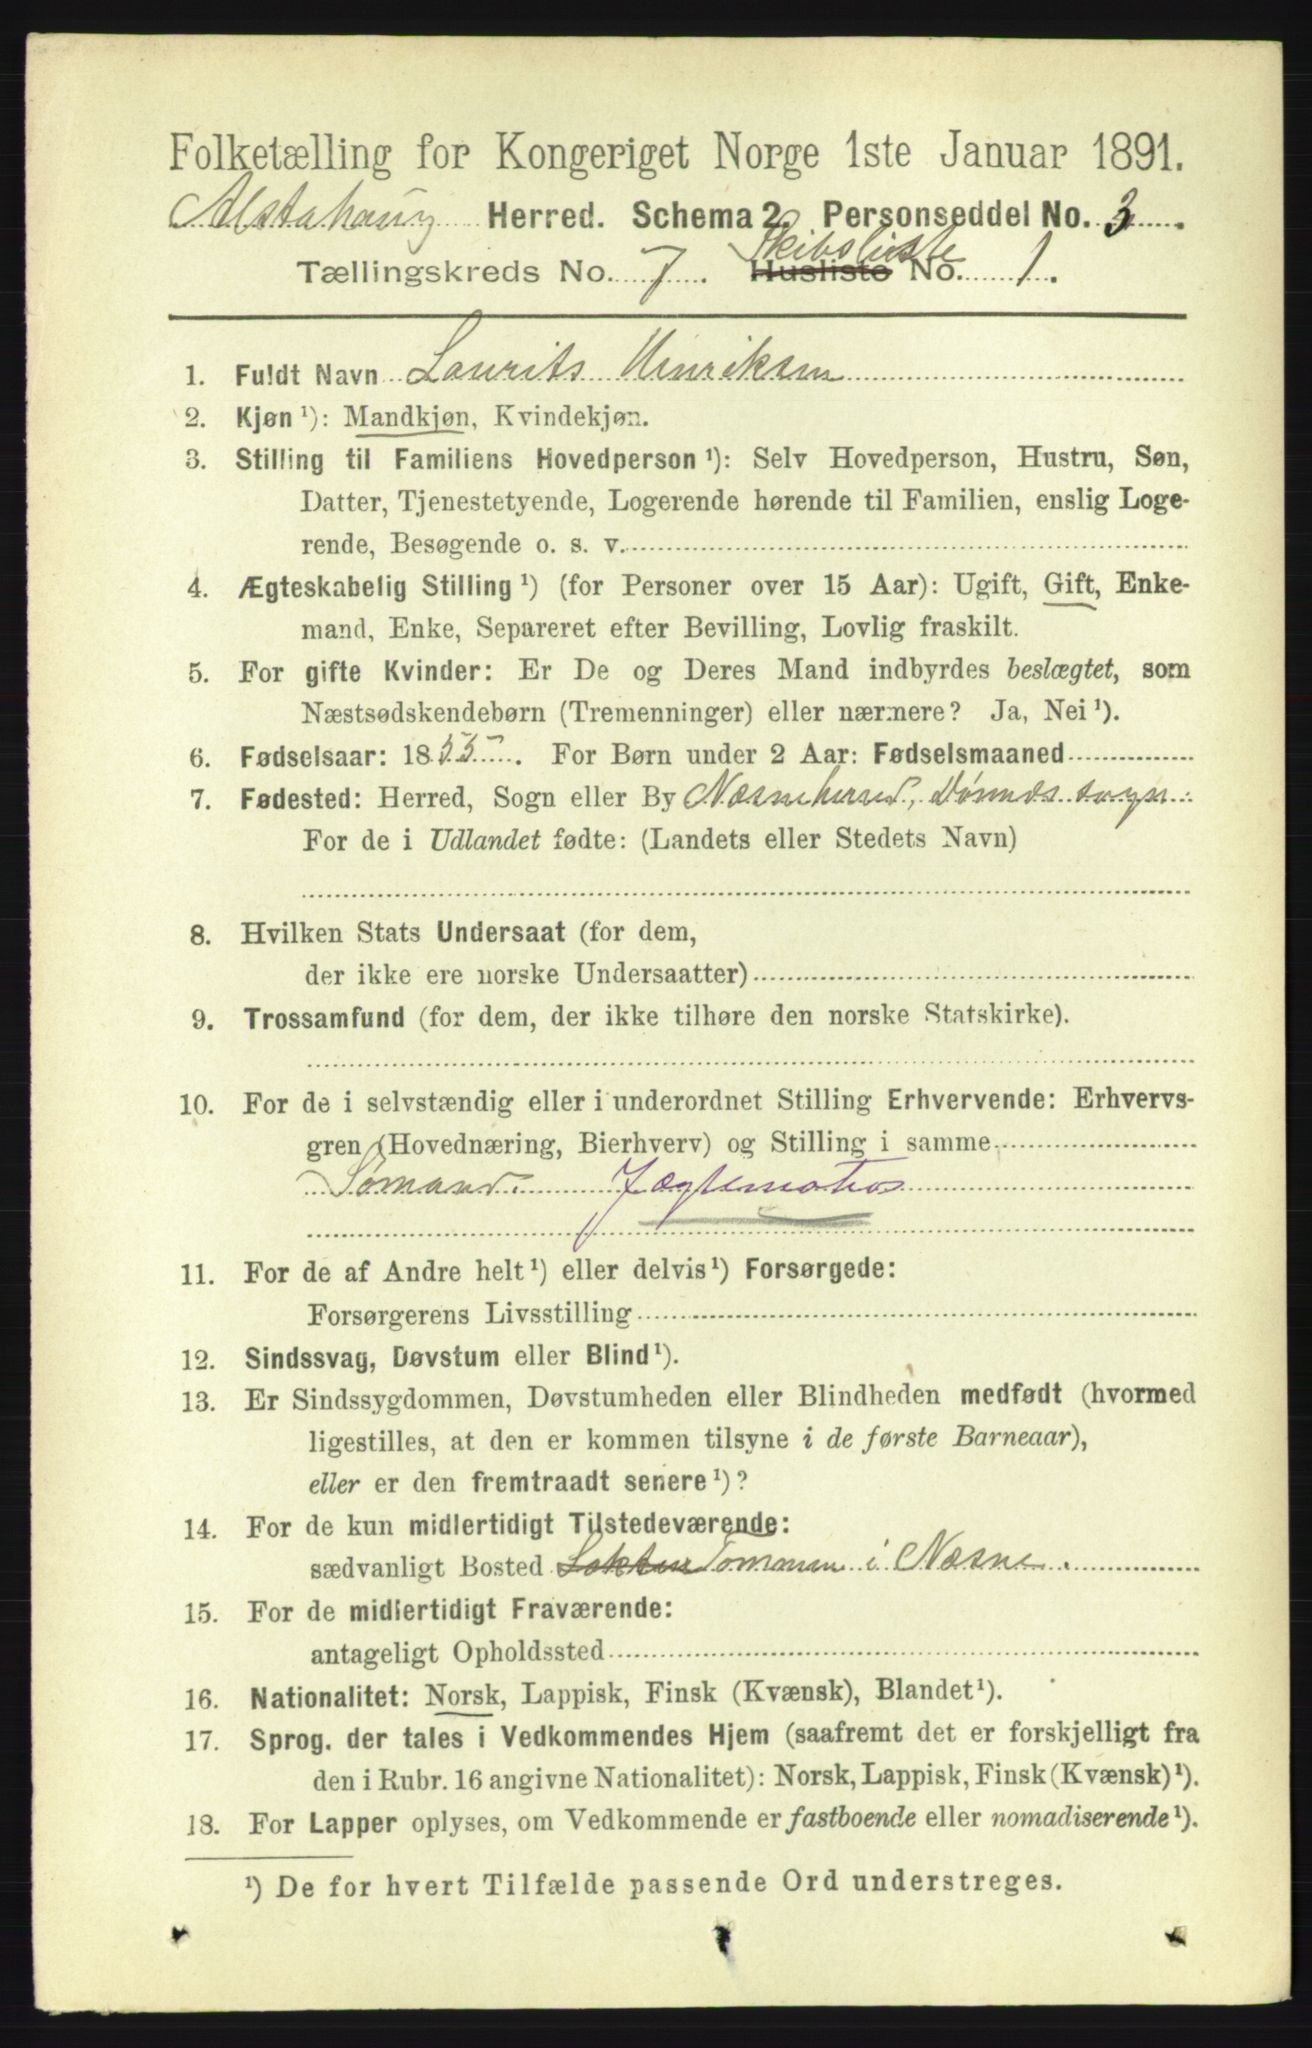 Folketælling for Kongeriget Norge 1ste Januar 1891.
Alstahoug Herred. Schema 2. Personseddel No. 3.
Skibsliste
Tællingskreds No. 7. Husliste No. 1.
1. Fuldt Navn Laurits Henriksen
2. Kjøn ¹): Mandkjøn, Kvindekjøn.
3. Stilling til Familiens Hovedperson ¹): Selv Hovedperson, Hustru, Søn,
Datter, Tjenestetyende, Logerende hørende til Familien, enslig Loge-
rende, Besøgende o. s. v.
4. Ægteskabelig Stilling ¹) (for Personer over 15 Aar): Ugift, Gift, Enke-
mand, Enke, Separeret efter Bevilling, Lovlig fraskilt.
5. For gifte Kvinder: Er De og Deres Mand indbyrdes beslægtet, som
Næstsødskendebørn (Tremenninger) eller nærmere? Ja, Nei ¹).
6. Fødselsaar: 1855. For Børn under 2 Aar: Fødselsmaaned
7. Fødested: Herred, Sogn eller By Næsne herred, Dønnes sogn.
For de i Udlandet fødte: (Landets eller Stedets Navn)
8. Hvilken Stats Undersaat (for dem,
der ikke ere norske Undersaatter)
9. Trossamfund (for dem, der ikke tilhøre den norske Statskirke).
10. For de i selvstændig eller i underordnet Stilling Erhvervende: Erhvervs-
gren (Hovednæring, Bierhverv) og Stilling i samme
Sømand. Jægtematros
11. For de af Andre helt ¹) eller delvis ¹) Forsørgede:
Forsørgerens Livsstilling
12. Sindssvag, Døvstum eller Blind ¹).
13. Er Sindssygdommen, Døvstumheden eller Blindheden medfødt (hvormed
ligestilles, at den er kommen tilsyne i de første Barneaar),
eller er den fremtraadt senere ¹)?
14. For de kun midlertidigt Tilstedeværende:
sædvanligt Bosted Tommen i Næsne.
15. For de midlertidigt Fraværende:
antageligt Opholdssted
16. Nationalitet: Norsk, Lappisk, Finsk (Kvænsk), Blandet ¹).
17. Sprog, der tales i Vedkommendes Hjem (saafremt det er forskjelligt fra
den i Rubr. 16 angivne Nationalitet): Norsk, Lappisk, Finsk (Kvænsk) ¹).
18. For Lapper oplyses, om Vedkommende er fastboende eller nomadiserende ¹).
¹) De for hvert Tilfælde passende Ord understreges.